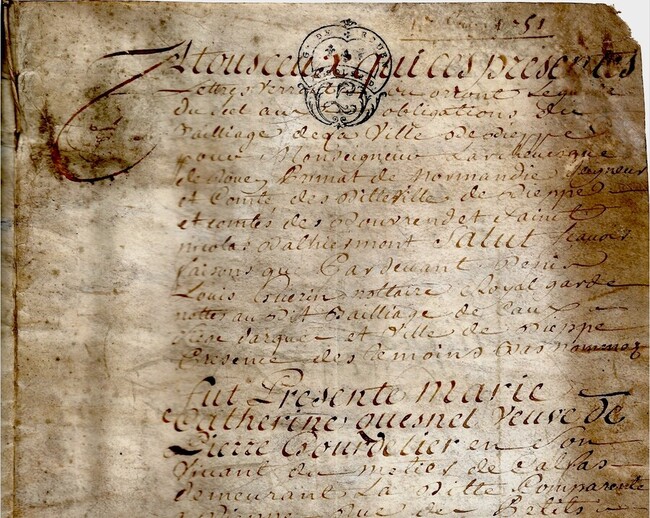 A tous ceux qui ces presentes
Lettres verront ou orront Le garde
du scel aux obligations du
Bailliage de la Ville de dieppe
pour Monseigneur Larchevesque
de Rouen Primat de Normandie Seigneur
et Comte des Ditte Ville de Dieppe
et comtés des Bouvrend et Saint
nicolas D'alhiermont Salut Scavoir
faisons que Pardevant Denis
Louis Guerin nottaire Royal garde
nottes au Dit Bailliage de Caux
siese Darque et Ville de Dieppe
Presence des temoins Bas nommez
fut Presente marie
Catherine quesnel veuve de
Pierre Bourdelier en Son
Vivant du metier de Calfas
demeurant La Ditte Comparente
a Dieppe Rue de